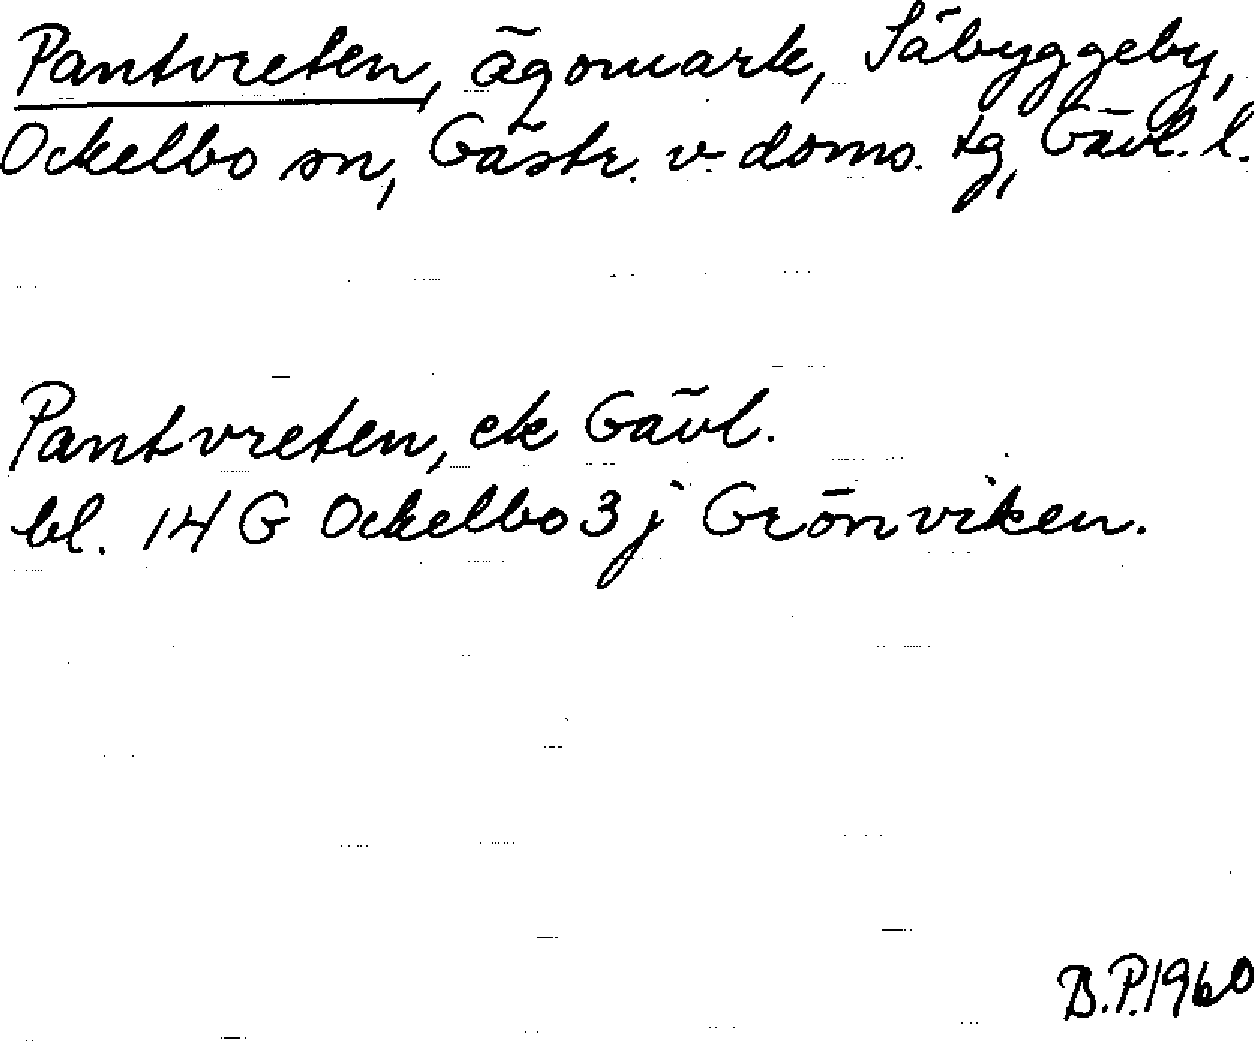 Pantvreten, ägomark, Säbyggeby,
Ockelbo sn, Gästr. v. doms. tg, Gävl. l.
Pantvreten, ek Gävl.
bl. 14 G Ockelbo 3 j Grönviken.
B.P. 1960